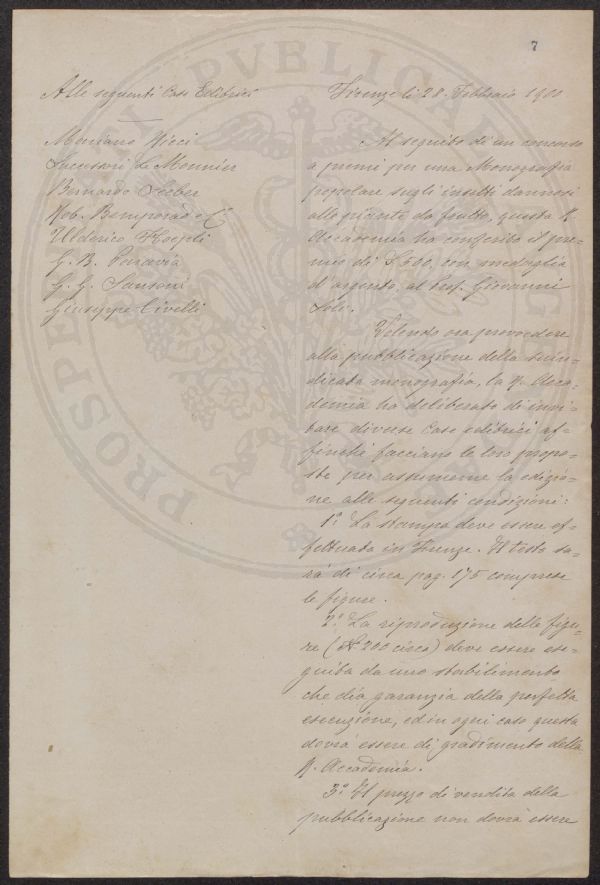 7
Alle seguenti Case Editrici
Firenze li 28. Febbraio 1900
Mariano Ricci
Successori Le Monnier
Bernardo Seeber
Rob. Bemporad e C.
Ulderico Hoepli
G. B. Paravia
G. C. Sansoni
Giuseppe Civelli
Al seguito di un concorso
a premi per una Monografia
popolare sugli insetti dannosi
alle piante da frutto, questa R.
Accademia ha conferito il pre=
mio di L. 500, con medaglia
d'argento, al Prof. Giovanni
Soli.
Volendo ora provvedere
alla pubblicazione della sun=
dicata monografia, la R. Acca=
demia ha deliberato di invi=
tare diverse Case editrici af=
finché facciano le loro propo=
ste per assumerne la edizio=
ne alle seguenti condizioni:
1.º La stampa deve essere ef=
fettuata in Firenze. Il testo sa=
rà di circa pag. 175 comprese
le figure.
2.º La riproduzione delle figu=
re (N. 200 circa) deve essere ese=
guita da uno stabilimento
che dia garanzia della perfetta
esecuzione, ed in ogni caso questa
dovrà essere di gradimento della
R. Accademia.
3.º Il prezzo di vendita della
pubblicazione non dovrà essere
PROSPE
PVBLICA